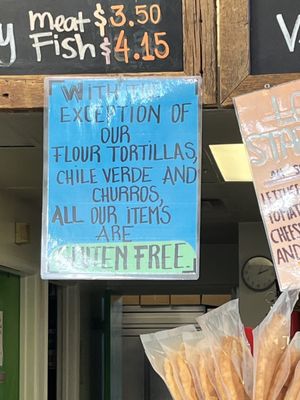 meat $3.50
Fish $4.15
WITH THE
EXCEPTION OF
OUR
FLOUR TORTILLAS,
CHILE VERDE AND
CHURROS,
ALL OUR ITEMS
ARE
GLUTEN FREE.
LETTUCE
TOMAT
CHEES
AND